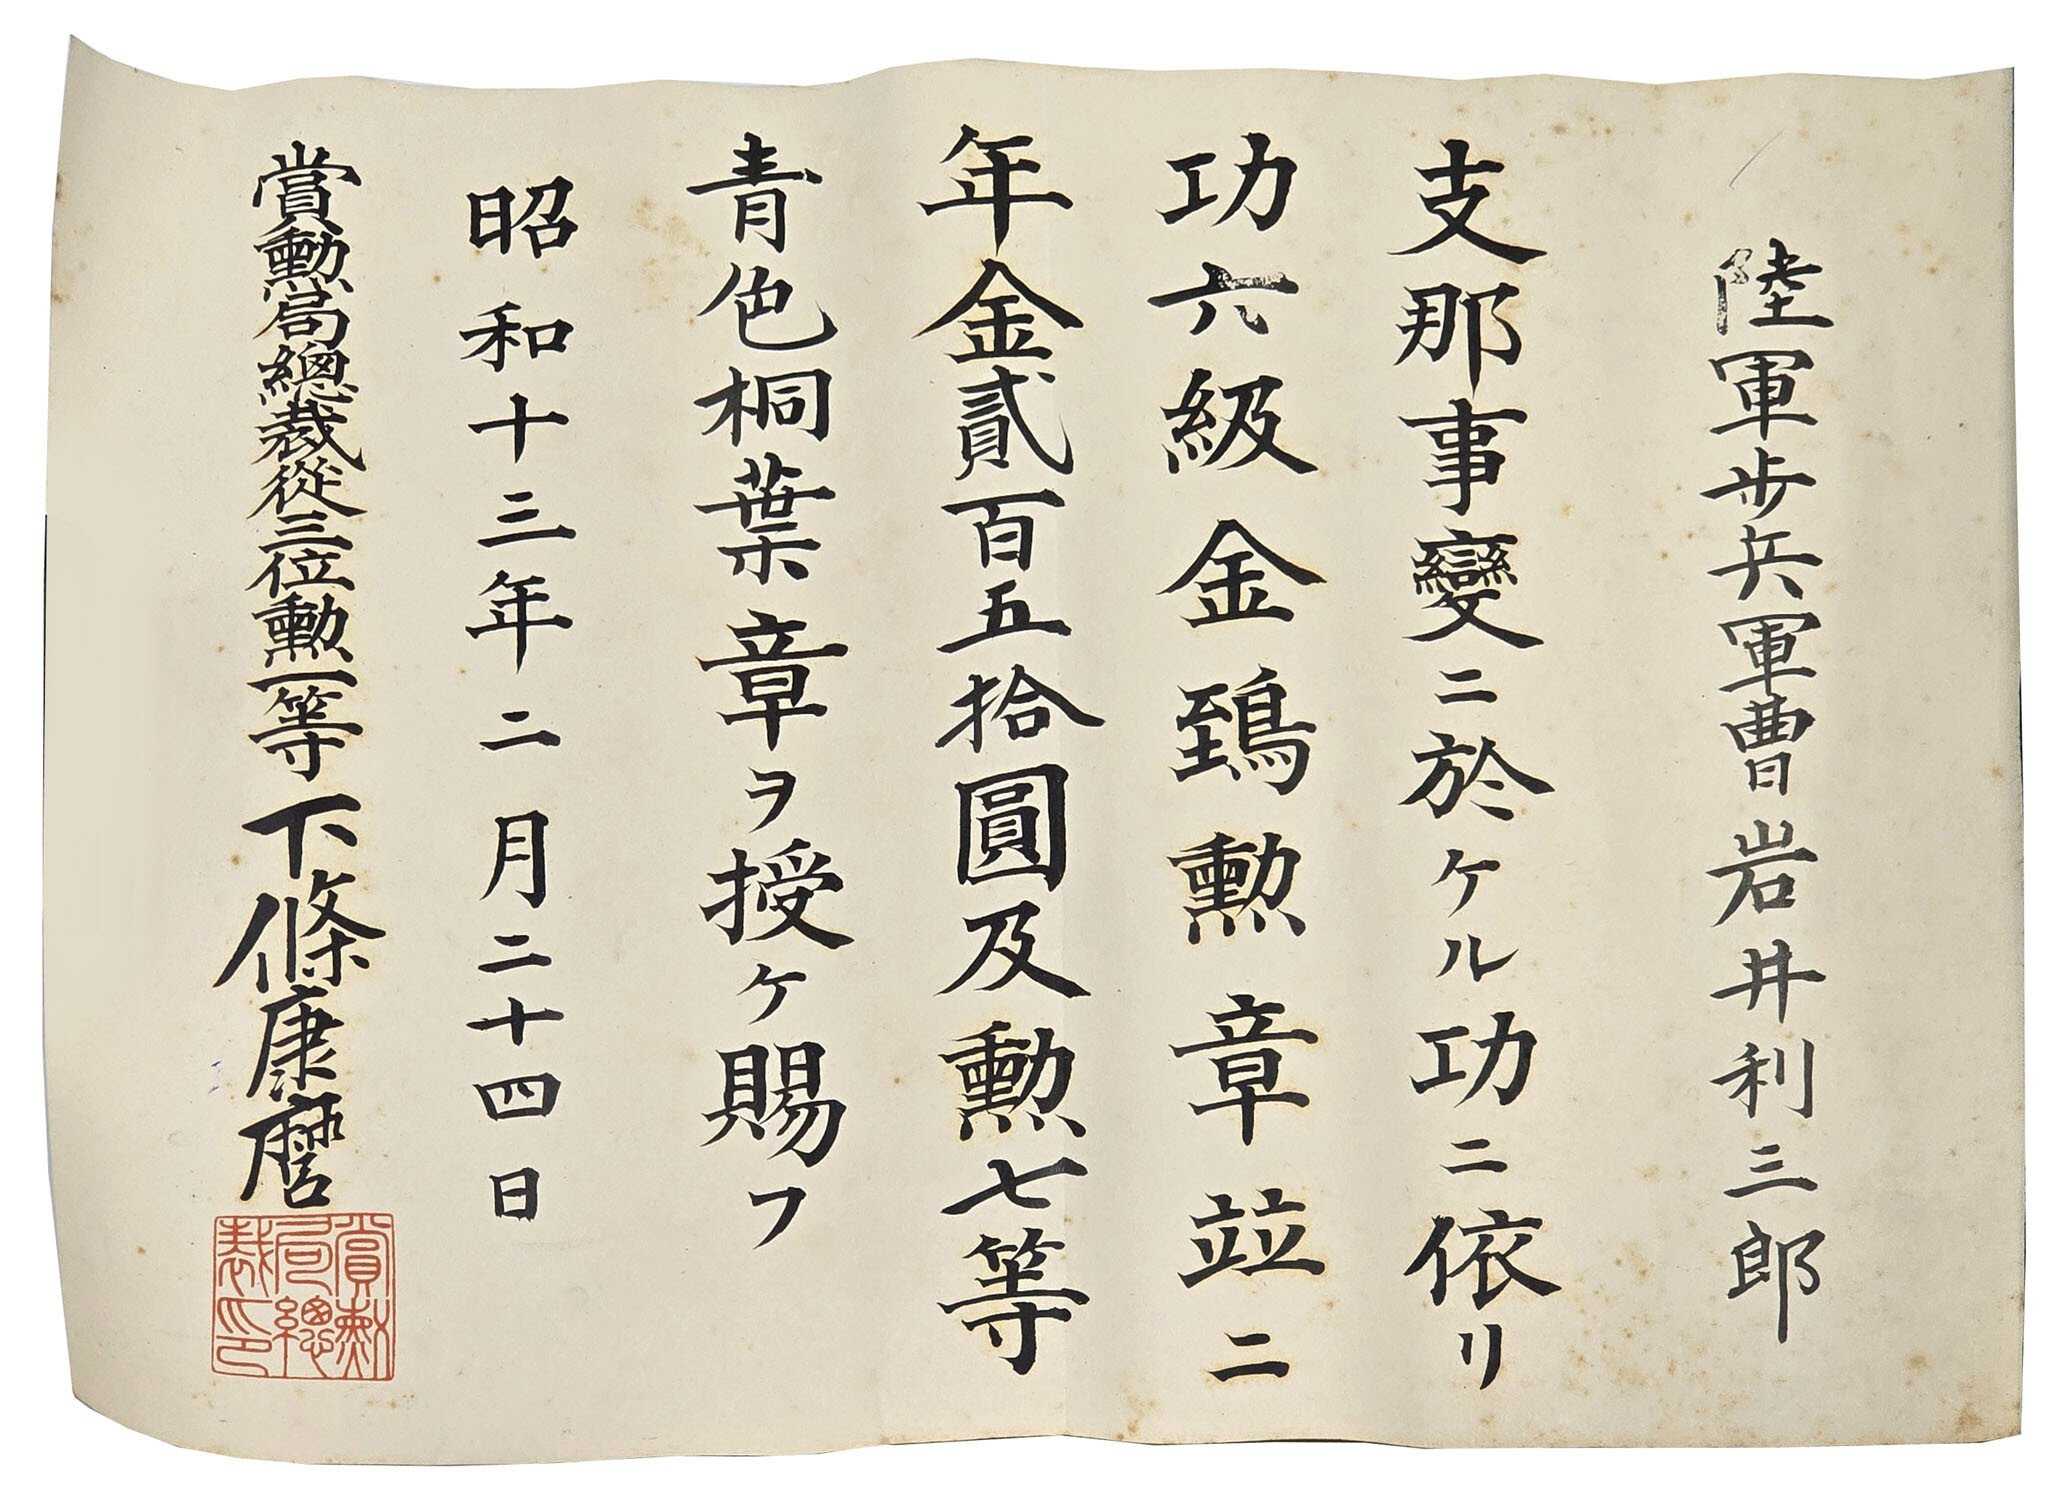 陸軍歩兵軍曹岩井利三郎
支那事變ニ於ケル功ニ依リ
功六級金鵄勲章竝ニ
年金貳百五拾圓及勲七等
青色桐葉章ヲ授ケ賜フ
昭和十三年二月二十四日
賞勲局總裁從三位勲一等下條康麿
賞勲
局總
裁印